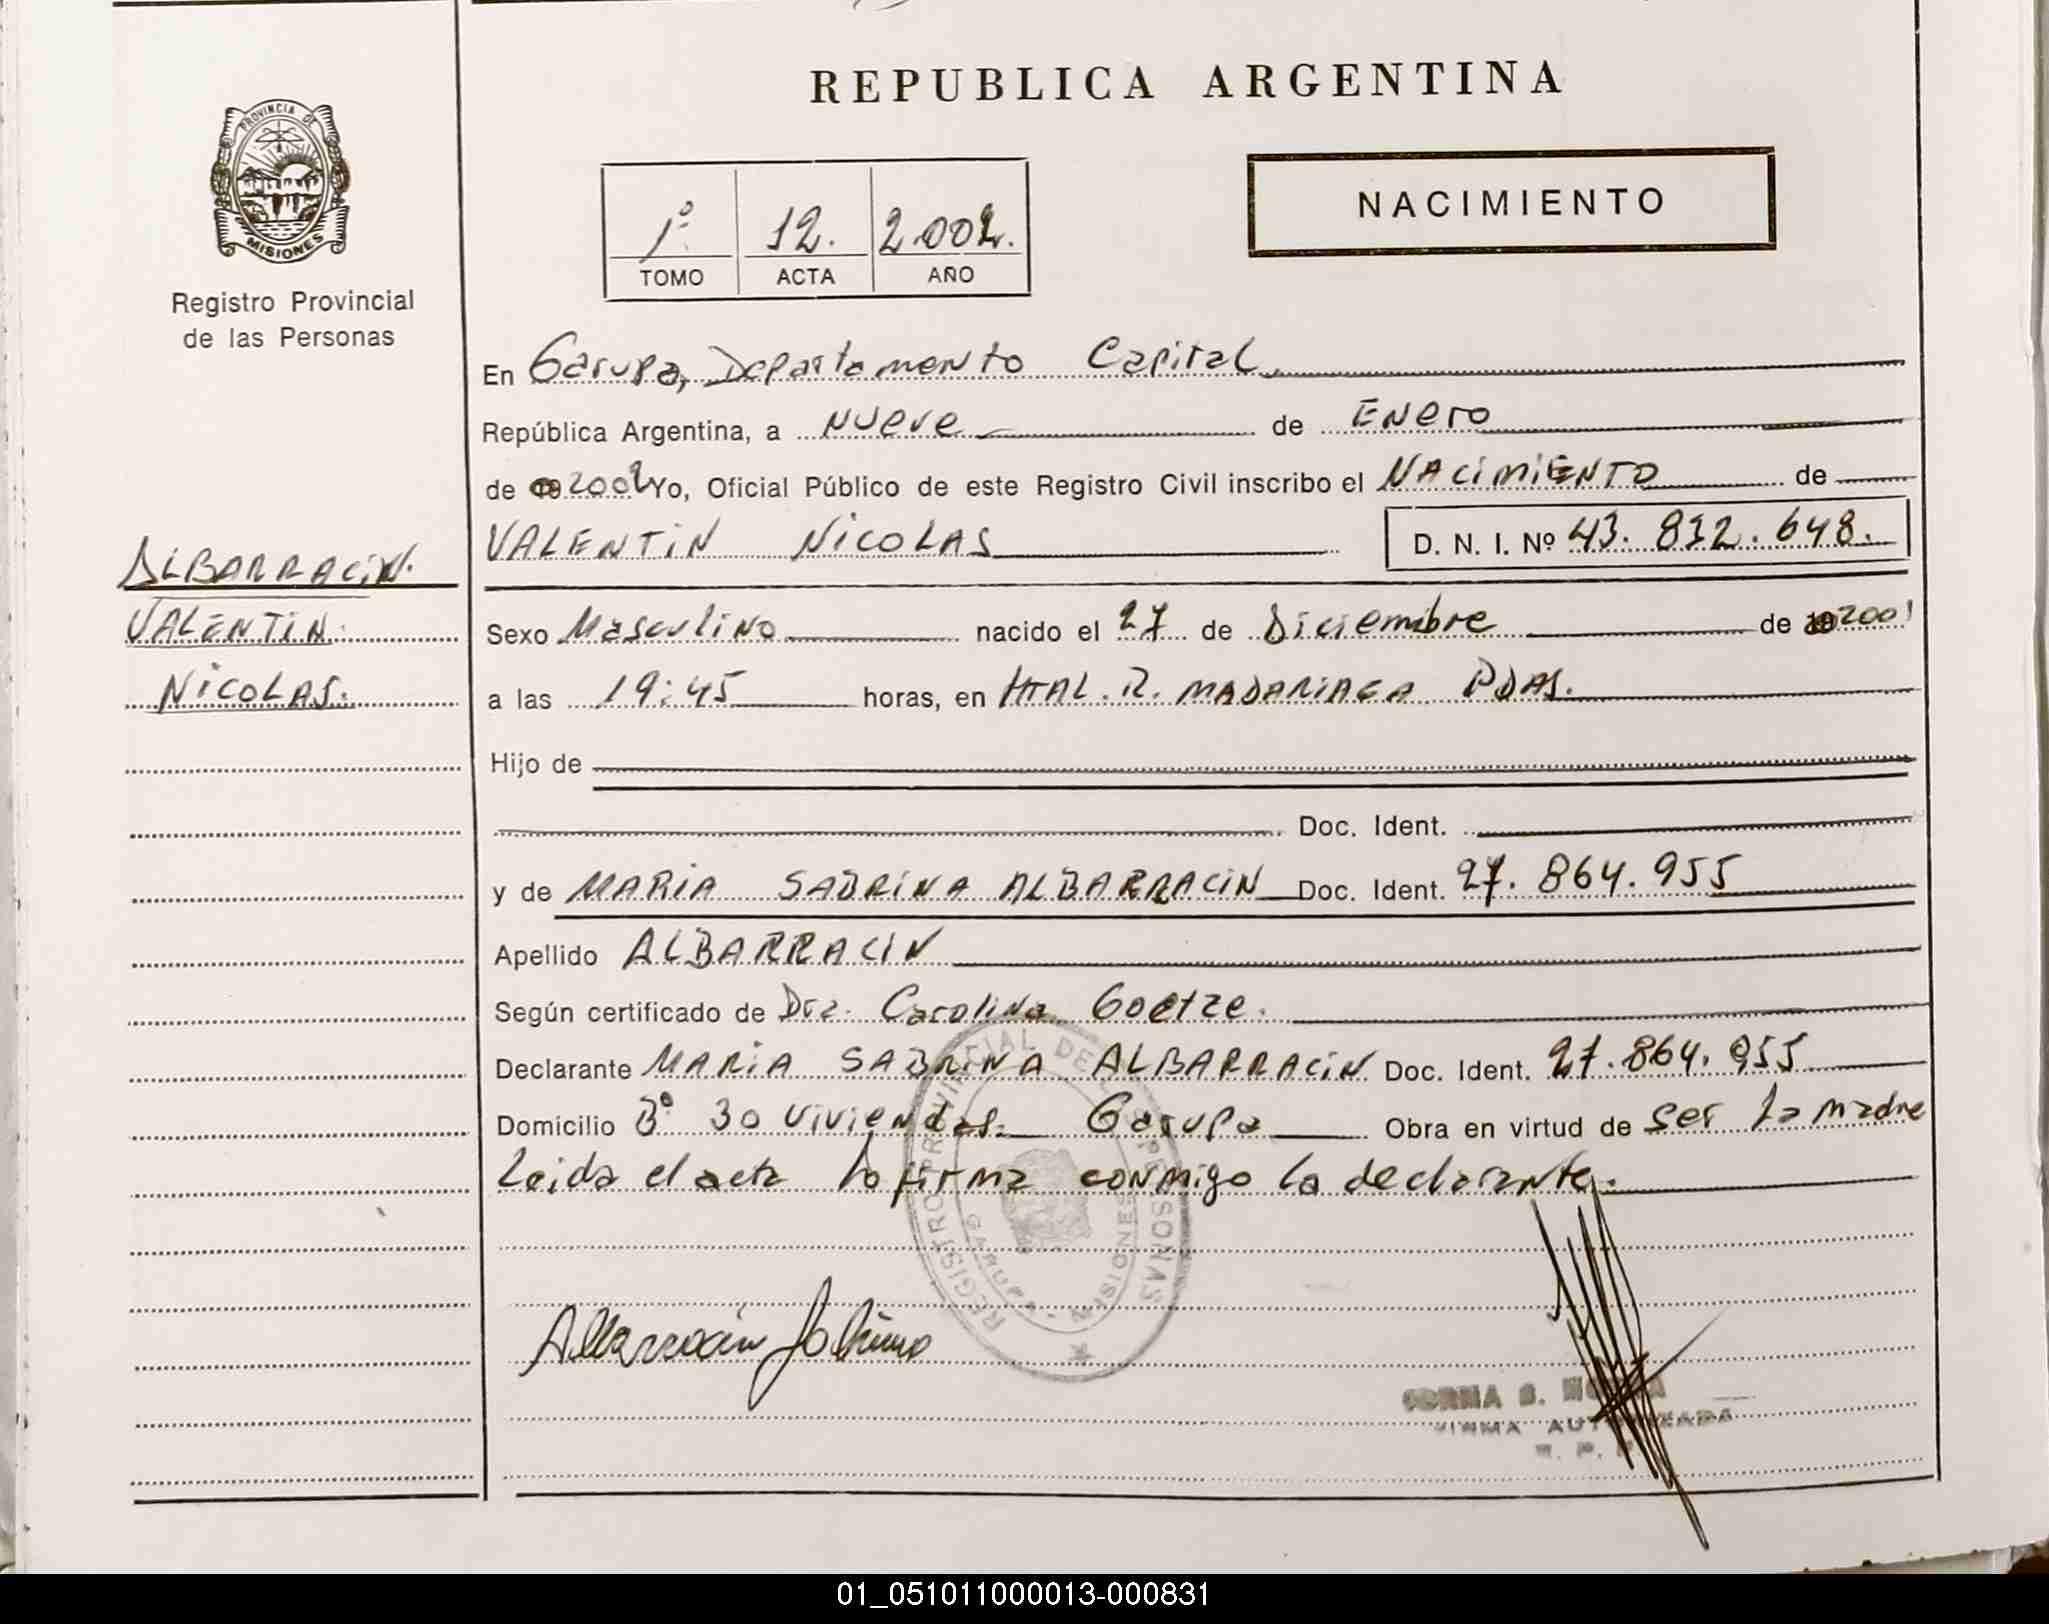 REPUBLICA ARGENTINA
PROVINCIA DE
MISIONES
Registro Provincial
de las Personas
1º 12. 2.002.
TOMO ACTA AÑO
NACIMIENTO
En Garupa, Departamento Capital,
República Argentina, a Nueve de Enero
de 2002 Yo, Oficial Público de este Registro Civil inscribo el NACIMIENTO de
VALENTIN NICOLAS D. N. I. Nº 43. 832. 648.
ALBARRACIN.
VALENTIN
NICOLAS.
Sexo Masculino nacido el 27 de Diciembre de 2001
a las 19:45 horas, en HTAL. R. MADARIAGA PDAS.
Hijo de
Doc. Ident.
y de MARIA SABRINA ALBARRACIN Doc. Ident. 27. 864. 955
Apellido ALBARRACIN
Según certificado de Dra. Carolina Goetze.
Declarante MARIA SABRINA ALBARRACIN Doc. Ident. 27. 864. 955
Domicilio Bº 30 Viviendas. Garupa Obra en virtud de ser la madre
Leida el acta la firma conmigo la declarante.
REGISTRO PROVINCIAL DE LAS PERSONAS
GARUPA - MISIONES
Albarracin Sabrina
FIRMA AUTORIZADA
R. P. P.
01_051011000013-000831